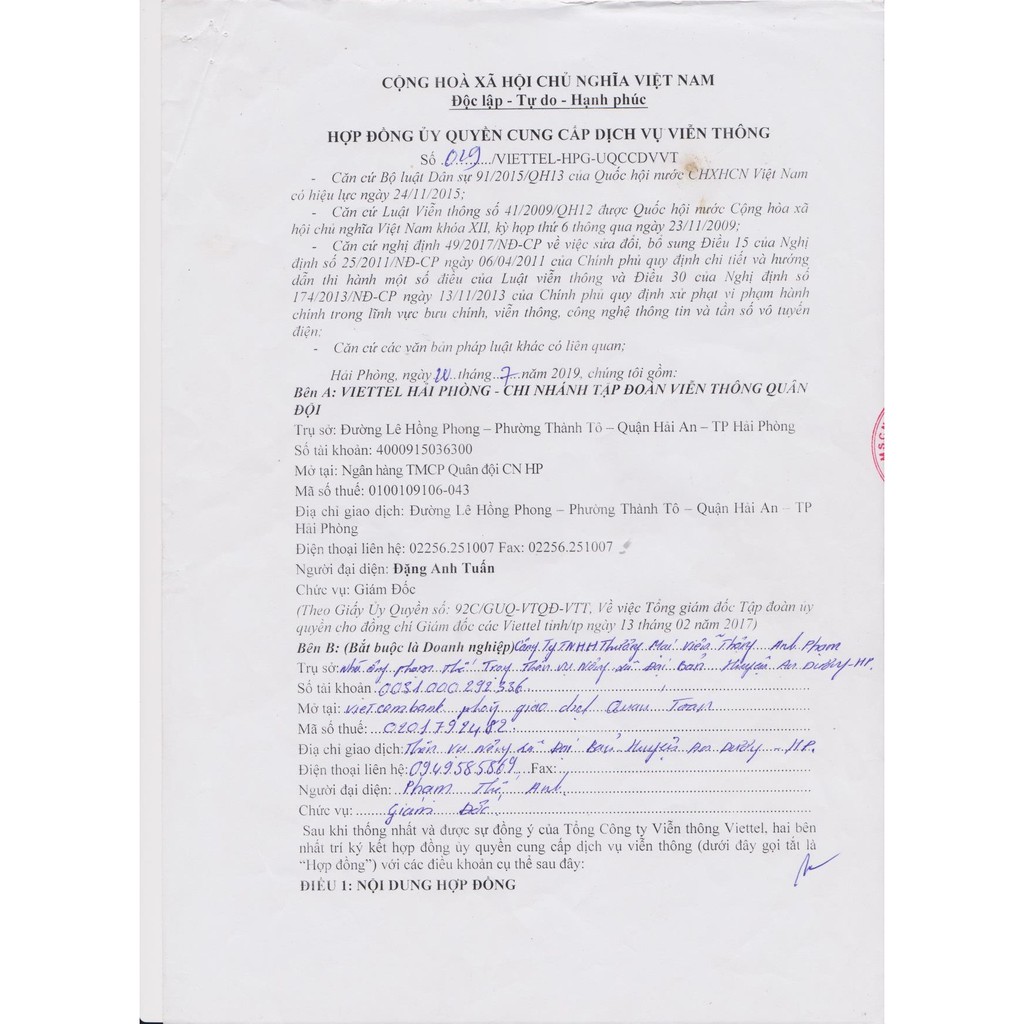 CỘNG HOÀ XÃ HỘI CHỦ NGHĨA VIỆT NAM
Độc lập - Tự do - Hạnh phúc
HỢP ĐỒNG ỦY QUYỀN CUNG CẤP DỊCH VỤ VIỄN THÔNG
Số 029/VIETTEL-HPG-UQCCDVVT
- Căn cứ Bộ luật Dân sự 91/2015/QH13 của Quốc hội nước CHXHCN Việt Nam
có hiệu lực ngày 24/11/2015;
- Căn cứ Luật Viễn thông số 41/2009/QH12 được Quốc hội nước Cộng hòa xã
hội chủ nghĩa Việt Nam khóa XII, kỳ họp thứ 6 thông qua ngày 23/11/2009;
- Căn cứ nghị định 49/2017/NĐ-CP về việc sửa đổi, bổ sung Điều 15 của Nghị
định số 25/2011/NĐ-CP ngày 06/04/2011 của Chính phủ quy định chi tiết và hướng
dẫn thi hành một số điều của Luật viễn thông và Điều 30 của Nghị định số
174/2013/NĐ-CP ngày 13/11/2013 của Chính phủ quy định xử phạt vi phạm hành
chính trong lĩnh vực bưu chính, viễn thông, công nghệ thông tin và tần số vô tuyến
điện;
- Căn cứ các văn bản pháp luật khác có liên quan;
Hải Phòng, ngày 20 tháng 7 năm 2019, chúng tôi gồm:
Bên A: VIETTEL HẢI PHÒNG - CHI NHÁNH TẬP ĐOÀN VIỄN THÔNG QUÂN
ĐỘI
Trụ sở: Đường Lê Hồng Phong – Phường Thành Tô – Quận Hải An – TP Hải Phòng
Số tài khoản: 4000915036300
Mở tại: Ngân hàng TMCP Quân đội CN HP
Mã số thuế: 0100109106-043
Địa chỉ giao dịch: Đường Lê Hồng Phong – Phường Thành Tô – Quận Hải An – TP
Hải Phòng
Điện thoại liên hệ: 02256.251007 Fax: 02256.251007
Người đại diện: Đặng Anh Tuấn
Chức vụ: Giám Đốc
(Theo Giấy Ủy Quyền số: 92C/GUQ-VTQĐ-VTT, Về việc Tổng giám đốc Tập đoàn ủy
quyền cho đồng chí Giám đốc các Viettel tỉnh/tp ngày 13 tháng 02 năm 2017)
Bên B: (Bắt buộc là Doanh nghiệp) Công Ty TNHH Thương Mại Viễn Thông Anh Phạm
Trụ sở: Nhà ông phạm Thế Thôn Vụ Nông xã Đại Bản Huyện An Dương-HP.
Số tài khoản 0031.000.292.336
Mở tại: Vietcombank phòng giao dịch Quán Toan
Mã số thuế: 0201792482
Địa chỉ giao dịch: Thôn Vụ Nông xã Đại Bản Huyện An Dương - HP.
Điện thoại liên hệ: 0949585869 Fax:
Người đại diện: Phạm Thế Anh
Chức vụ: Giám Đốc
Sau khi thống nhất và được sự đồng ý của Tổng Công ty Viễn thông Viettel, hai bên
nhất trí ký kết hợp đồng ủy quyền cung cấp dịch vụ viễn thông (dưới đây gọi tắt là
“Hợp đồng”) với các điều khoản cụ thể sau đây:
ĐIỀU 1: NỘI DUNG HỢP ĐỒNG